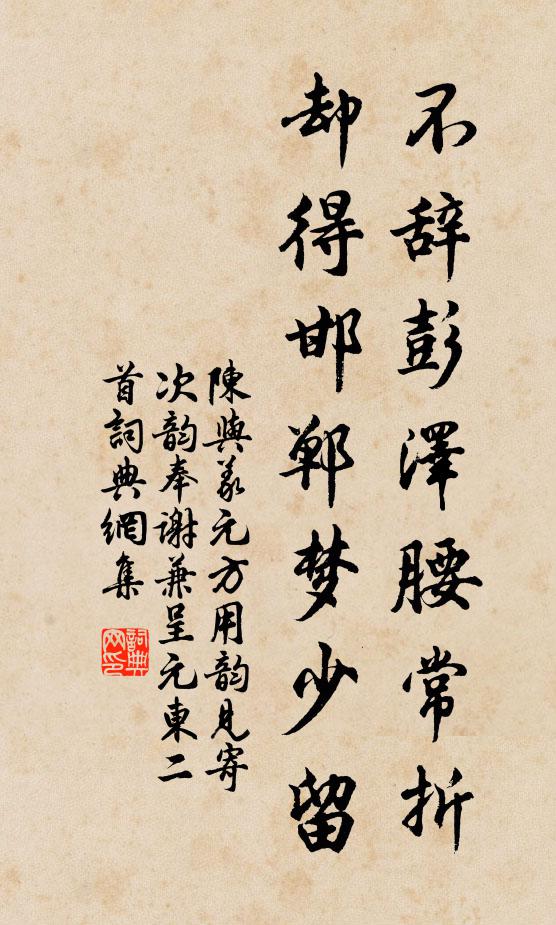 不辞彭澤腰常折
却得邯郸梦少留
陳與義元方用韵見寄
次韵奉谢兼呈元東二
首詞典網集
詞典
网印